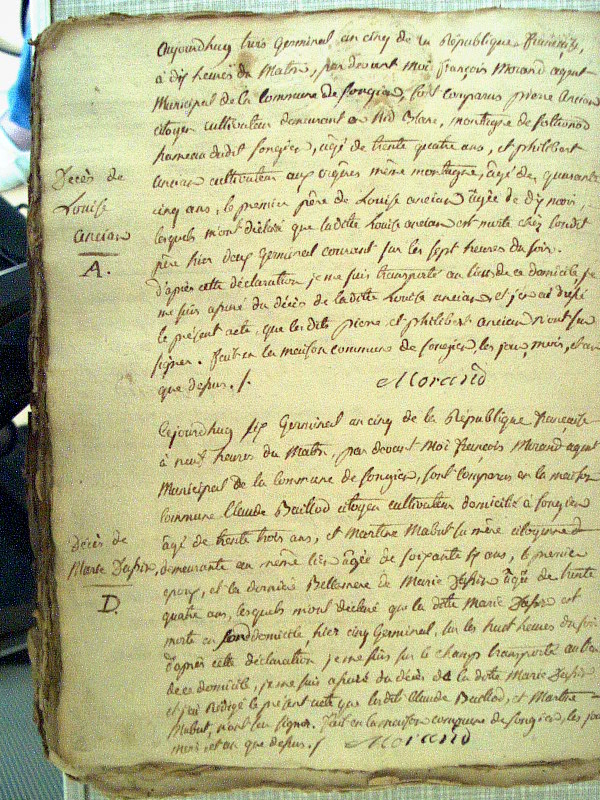 Aujourdhuy trois Germinal an cinq de la République française,
à dix heures du Matin, par devant Moi françois Morand agent
Municipal de la commune de Songieu, sont comparus pierre Ancian
citoyen cultivateur demeurant en Nid Blanc, montagne de
hameau dudit Songieu, âgé de trente quatre ans, et philibert
Decès de
Louise
ancian
A.
ancian cultivateur aux même montagne, âgé de quarante
cinq ans, le premier père de Louise ancian âgée de dix mois,
lesquels m'ont déclaré que ladite Louise ancian est morte chez sondit
père hier deux Germinal courant sur les sept heures du soir.
d'après cette déclaration je me suis transporté au lieu de ce domicile, je
me suis assuré du décès de la ditte Louise ancian, et j'en ai dressé
le présent acte, que les dits pierre et philibert ancian n'ont su
signer. fait en la maison commune de Songieu, les jour, mois, et an
que dessus. /.
Morand
Cejourdhuy six Germinal an cinq de la République française
à neuf heures du Matin, par devant Moi françois Morand agent
Municipal de la commune de Songieu, sont comparus en la maison
commune Claude Baillod citoyen cultivateur domicilié à Songieu
décès de
Marie
D.
âgé de trente trois ans, et Martine Mabut sa mère citoyenne
demeurante au même lieu âgée de soixante six ans, le premier
époux, et la dernière Bellemère de Marie âgée de trente
quatre ans, lesquels m'ont déclaré que la ditte Marie est
morte en son domicile hier cinq Germinal, sur les huit heures du soir
d'après cette déclaration je me suis sur le champ transporté au lieu
de ce domicile, je me suis assuré du décès de la ditte Marie
et j'ai rédigé le présent acte que lesdits Claude Baillod, et Martine
Mabut, n'ont su signer. fait en la maison commune de Songieu, les jour
mois, et an que dessus. /
Morand